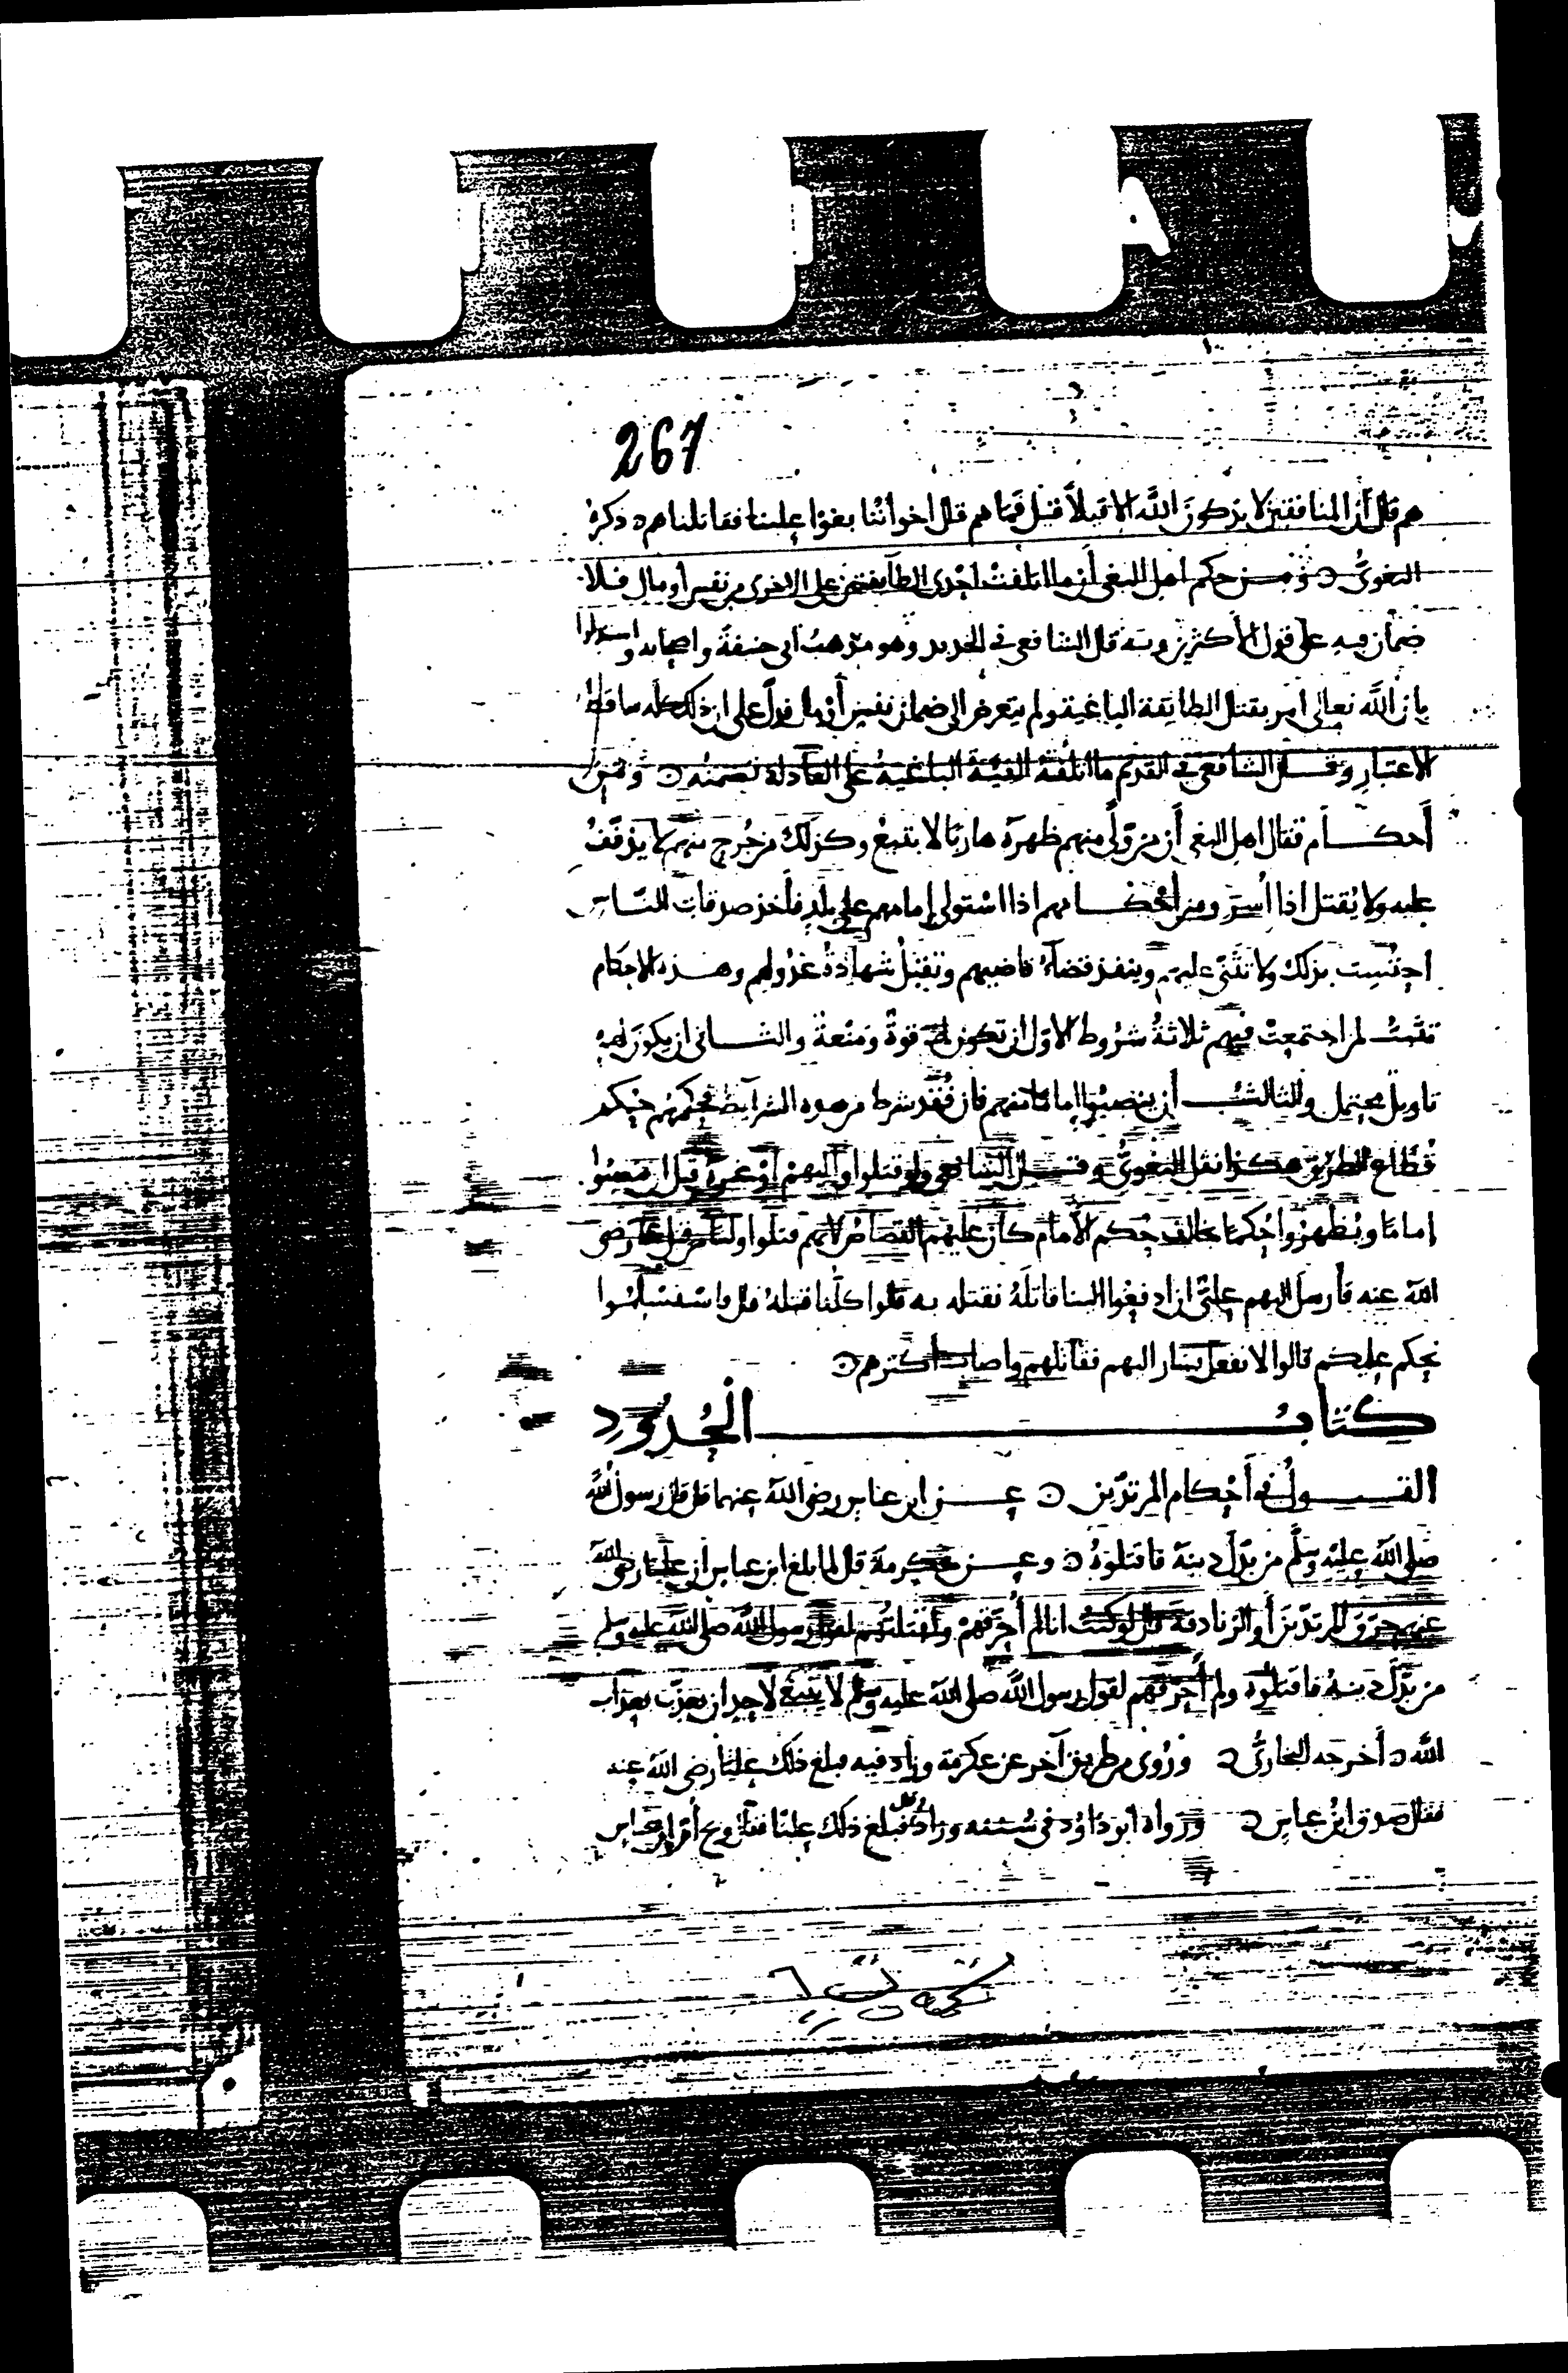 267
هم قال أن المنافقين لا يذكرون الله الا قليلاً قيل فما هم قال اخواننا بغوا علينا فقاتلناهم ذكره
البغوي ومن حكم اهل البغي أن ما اتلفت احدى الطائفتين على الاخرى من نفس أو مال فلا
ضمان فيه على قول الأكثرين وبه قال الشافعي في الجديد وهو مذهب ابي حنيفة واصحابه واستدلوا
بان الله تعالى امر بقتال الطائفة الباغية ولم يتعرض الى ضمان نفس أو مال فدل على ان ذلك كله ساقط
الاعتبار وقال الشافعي في القديم ما اتلفته الفئة الباغية على العادلة تضمنه ومن
أحكام قتال اهل البغي أن من ولى منهم ظهره هاربا لا يتبع وكذلك من جرح منهم لا يذفف
عليه ولا يقتل اذا أسر ومن أحكامهم اذا استولى إمامهم على بلد فأخذ صدقات الناس
احتسبت بذلك ولا تثنى عليهم وينفذ قضاء قاضيهم وتقبل شهادة عدولهم وهذه الاحكام
تثبت لمن اجتمعت فيهم ثلاثة شروط الاول ان تكون لهم قوة ومنعة والثاني ان يكون لهم
تاويل محتمل والثالث أن ينصبوا إماما منهم فان فقد شرط من هذه الشرايط فحكمهم حكم
قطاع الطريق هكذا نقل البغوي وقال الشافعي ولو قتلوا واليهم أو غيره قبل ان ينصبوا
إماما ويظهروا حكما خالف حكم الامام كان عليهم القصاص لانهم قتلوا والٍ من قبل علي رضي
الله عنه فأرسل اليهم علي ان ادفعوا الينا قاتله نقتله به قالوا كلنا قتله قال فاستسلموا
نحكم عليكم قالوا لا نفعل فسار اليهم فقاتلهم واصاب أكثرهم
كتاب الحدود
القول في أحكام المرتدين عن ابن عباس رضي الله عنهما قال قال رسول الله
صلى الله عليه وسلم من بدل دينه فاقتلوه وعن عكرمة قال لما بلغ ابن عباس أن عليا رضي الله
عنه حرق المرتدين أو الزنادقة قال لو كنت انا لم أحرقهم ولقتلتهم لقول رسول الله صلى الله عليه وسلم
من بدل دينه فاقتلوه ولم أحرقهم لقول رسول الله صلى الله عليه وسلم لا ينبغي لاحد ان يعذب بعذاب
الله أخرجه البخاري وروى من طريق آخر عن عكرمة وزاد فيه فبلغ ذلك عليا رضي الله عنه
فقال صدق ابن عباس ورواه ابو داود في سننه وزاد قال فبلغ ذلك عليا فقال ويح أم ابن عباس